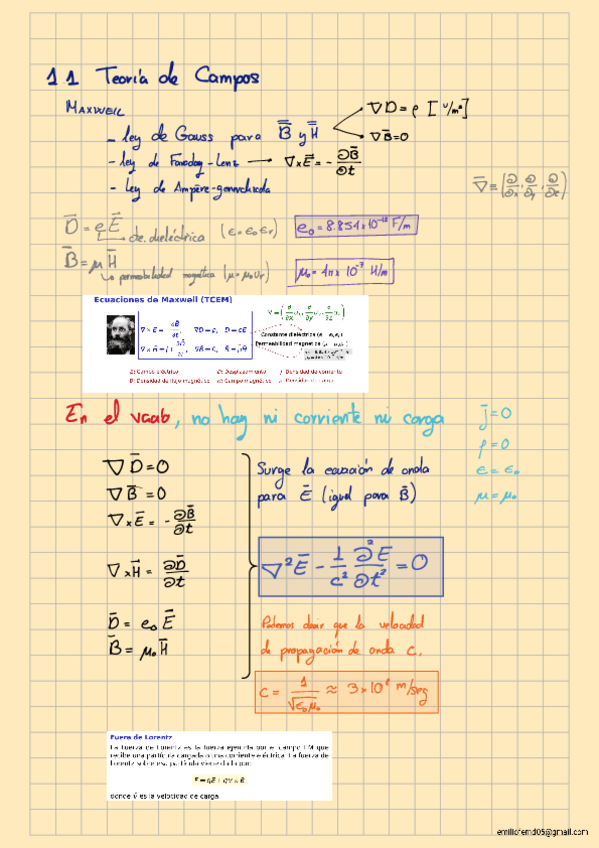 1.1 Teoría de Campos
MAXWELL
- ley de Gauss para B̄ y H̄
∇D = ρ [C/m³]
∇B̄ = 0
- ley de Faraday-Lenz → ∇×Ē = - ∂B̄/∂t
- ley de Ampère-
∇̄ = (∂/∂x, ∂/∂y, ∂/∂z)
D̄ = ε Ē
cte. dieléctrica (ε = ε₀ εr)
ε₀ = 8.854 x 10⁻¹² F/m
B̄ = μ H̄
↳ permeabilidad magnética (μ = μ₀ μr)
μ₀ = 4π x 10⁻⁷ H/m
Ecuaciones de Maxwell (TCEM)
Constante dieléctrica
Permeabilidad magnética
E: Campo eléctrico
D: Desplazamiento
J: Densidad de corriente
B: Densidad de flujo magnético
H: Campo magnético
En el vacío, no hay ni corriente ni carga
j̄ = 0
ρ = 0
ε = ε₀
μ = μ₀
∇ D̄ = 0
∇ B̄ = 0
∇×Ē = - ∂B̄/∂t
∇×H̄ = ∂D̄/∂t
D̄ = e₀ Ē
B̄ = μ₀ H̄
Surge la ecuación de onda
para Ē (igual para B̄)
∇²Ē - 1/c² ∂²E/∂t² = 0
Podemos decir que la velocidad
de propagación de onda c.
c = 1/√ε₀μ₀ ≈ 3x10⁸ m/seg
Fuerza de Lorentz
La fuerza de Lorentz es la fuerza ejercida por el campo EM que
recibe una partícula cargada o una corriente eléctrica. La fuerza de
Lorentz sobre esa partícula viene dada por:
donde v̄ es la velocidad de carga.
emiliofernd05@gmail.com